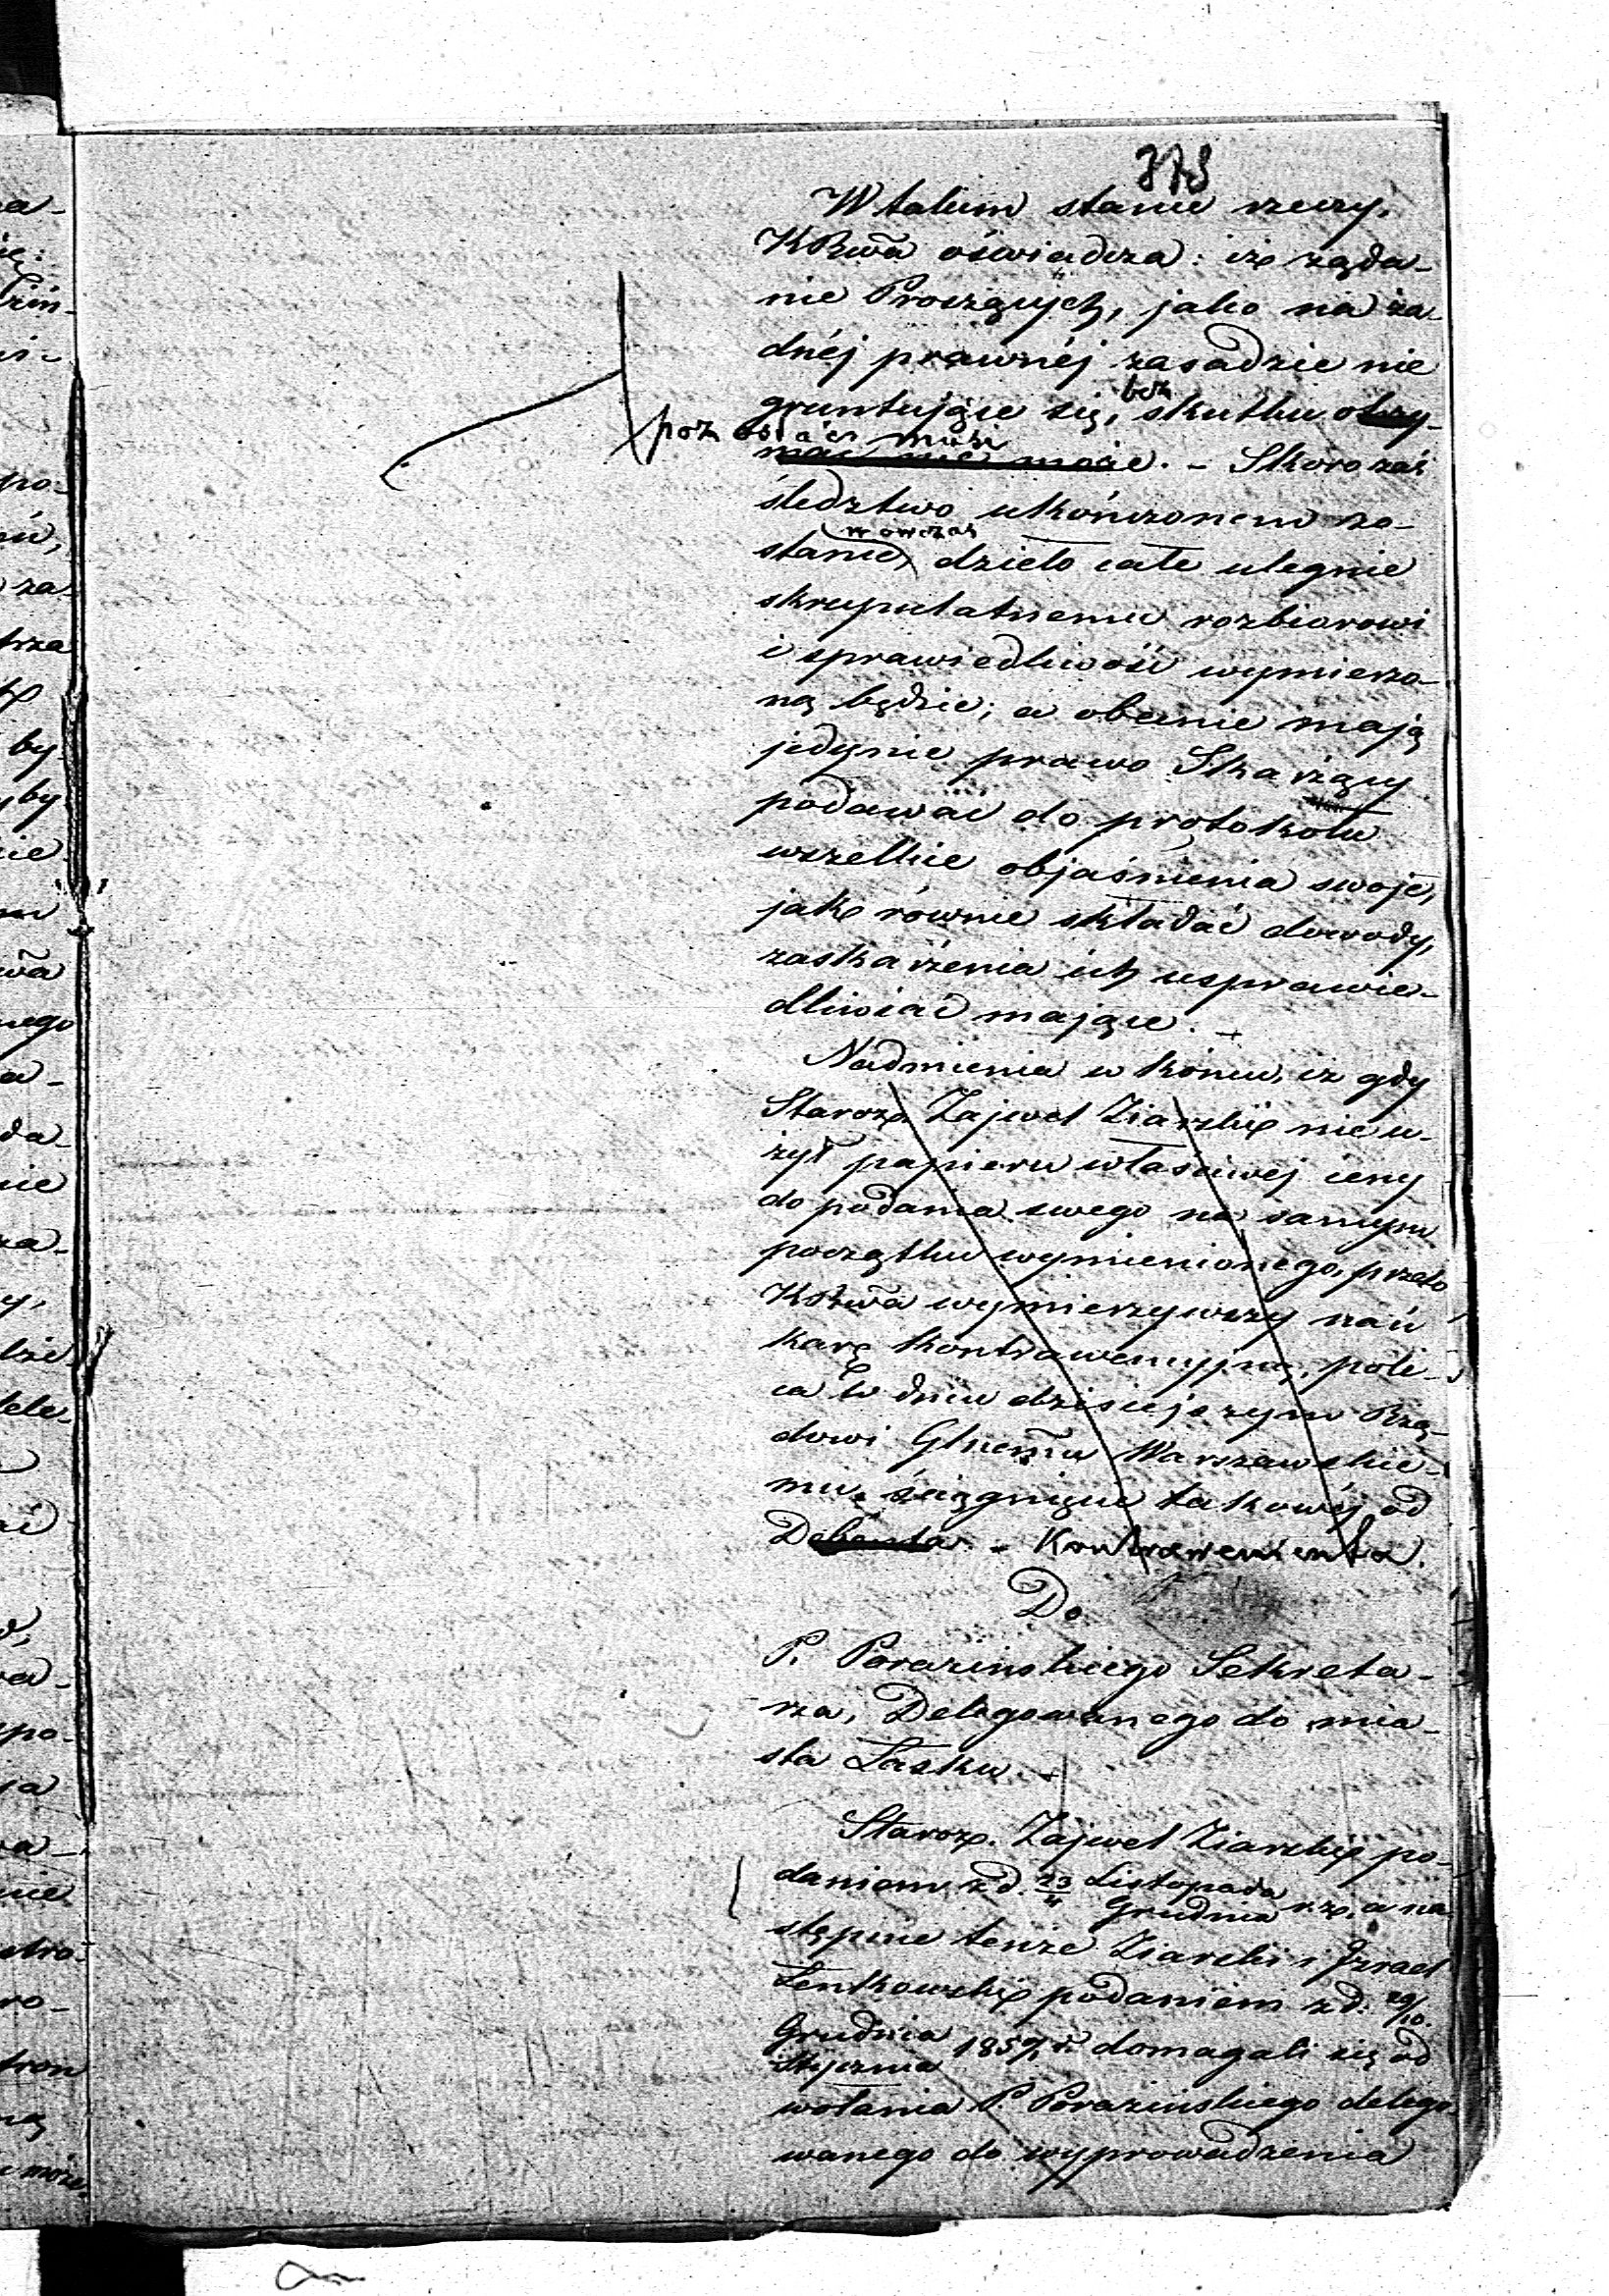 W takim stanie rzeczy,
KRwa oświadcza: iż żąda-
nie Proszących, jako na ża-
dnéj prawnéj zasadzie nie
gruntujące się, bez skutku otrzy-
pozostać musi
mać nie może. - Skoro zaś
śledztwo ukończonem zo-
stanie, wówczas dzieło całe ulegnie
skrupulatnemu rozbiorowi
i sprawiedliwość wymierzo-
ną będzie; a obecnie mają
jedynie prawo Skarżący
podawać do protokołu
wszelkie objaśnienia swoje,
jak równie składać dowody,
zaskarżenia ich usprawie-
dliwiać mające. -
Nadmienia w końcu, iż gdy
Staroz. Zajwel Ziarski nie u-
żył papieru właściwej ceny
do podania swego na samym
początku wymienionego, przeto
KRwa wymierzywszy nań
karę kontrawencyjną, pole-
ca w dniu dzisiejszym Rzą-
dowi Glnemu Warszawskie-
mu, ściągnięcie takowéj od
Debenta. - Kontrawenienta.
Do
P. Porazinskiego Sekreta-
rza, Delegowanego do mia-
sta Łasku. -
Staroz. Zajwel Ziarski po-
daniem z d. 23/4 Listopada/Grudnia r.z. a na
stępnie tenże Ziarski i Izrael
Lentkowski podaniem z d. 29/10
Grudnia/Stycznia 1859/ r. domagali się od
wołania P. Porazinskiego delego-
wanego do wyprowadzenia